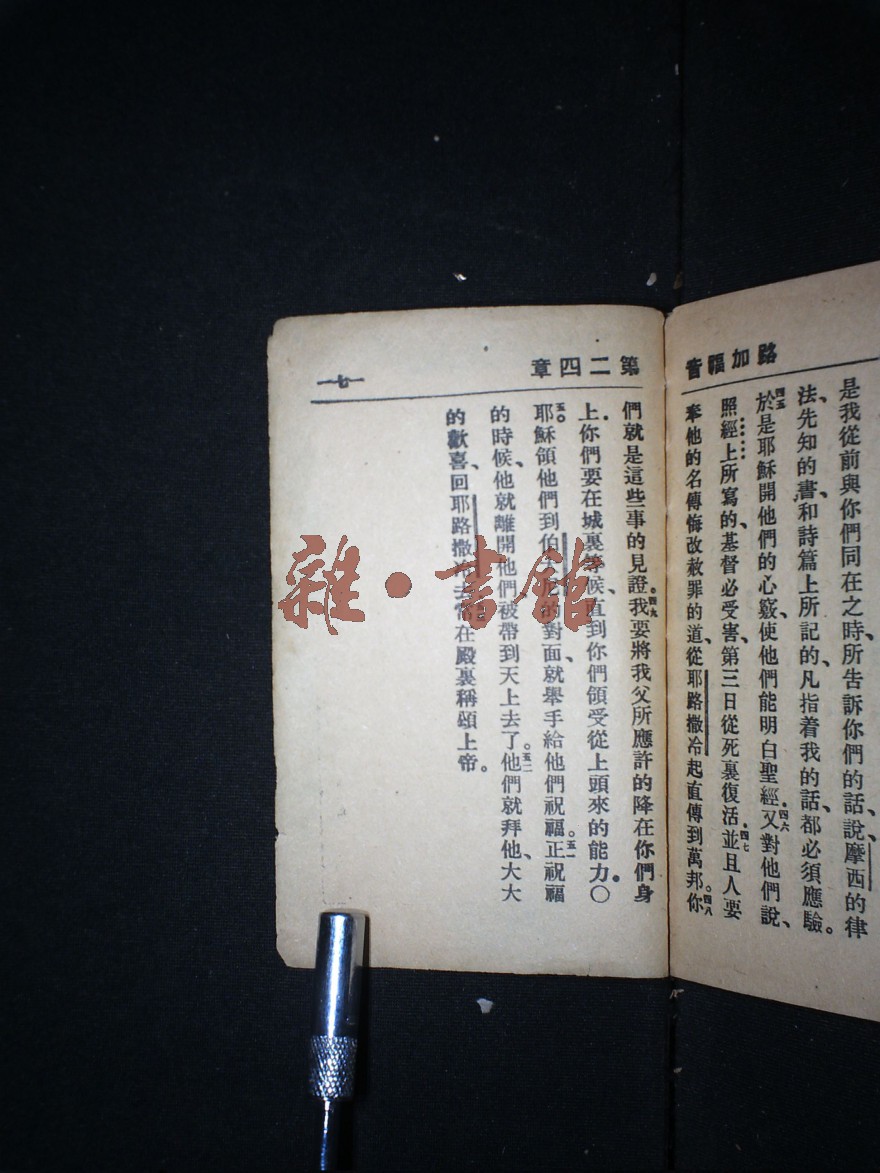 路加福音
是我從前與你們同在之時、所告訴你們的話、說、摩西的律
法、先知的書、和詩篇上所記的、凡指着我的話、都必須應驗。
四五於是耶穌開他們的心竅、使他們能明白聖經。四六又對他們說、
照經上所寫的、基督必受害、第三日從死裏復活。四七並且人要
奉他的名傳悔改赦罪的道、從耶路撒冷起直傳到萬邦。四八你
第二四章
們就是這些事的見證。四九我要將我父所應許的降在你們身
上、你們要在城裏等候、直到你們領受從上頭來的能力。〇
五〇耶穌領他們到伯大尼的對面、就舉手給他們祝福。五一正祝福
的時候、他就離開他們被帶到天上去了。五二他們就拜他、大大
的歡喜、回耶路撒冷去常在殿裏稱頌上帝。
一七一
雜·書館